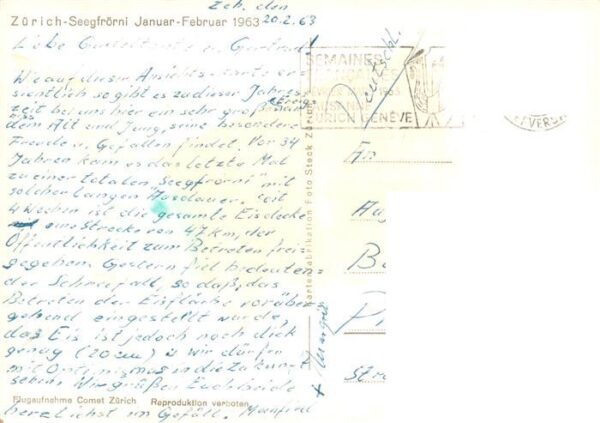 Zch. den
Zürich-Seegfrörni Januar-Februar 1963 20.2.63
Liebe u. Gertrud!
Wie auf dieser Ansichtskarte er-
sichtlich so gibt es zu dieser Jahres-
zeit bei uns hier ein sehr großes Ereig-
nis dem Alt und Jung, seine besondere
Freude u. Gefallen findet. Vor 34
Jahren kam es das letzte Mal
zu einer totalen "Seegfrörni" mit
solcher langen Ausdauer. Seit
4 Wochen ist die gesamte Eisdecke
eine Strecke von 47 km, der
Öffentlichkeit zum Betreten frei-
gegeben. Gestern fiel bedeuten-
der Schneefall, so daß, das
Betreten der Eisfläche vorüber-
gehend eingestellt wurde,
das Eis ist jedoch noch dick
genug (20 cm) u wir dürfen
mit Optimismus in die Zukunft
sehen. Wir grüßen Euch beide
Flugaufnahme Comet Zürich Reproduktion verboten
herzlichst Manfred
+ Margrit
Kartenfabrikation Foto Steck Zürich
SEMAINES
1963
ZÜRICH GENÈVE
Deutschl.
An